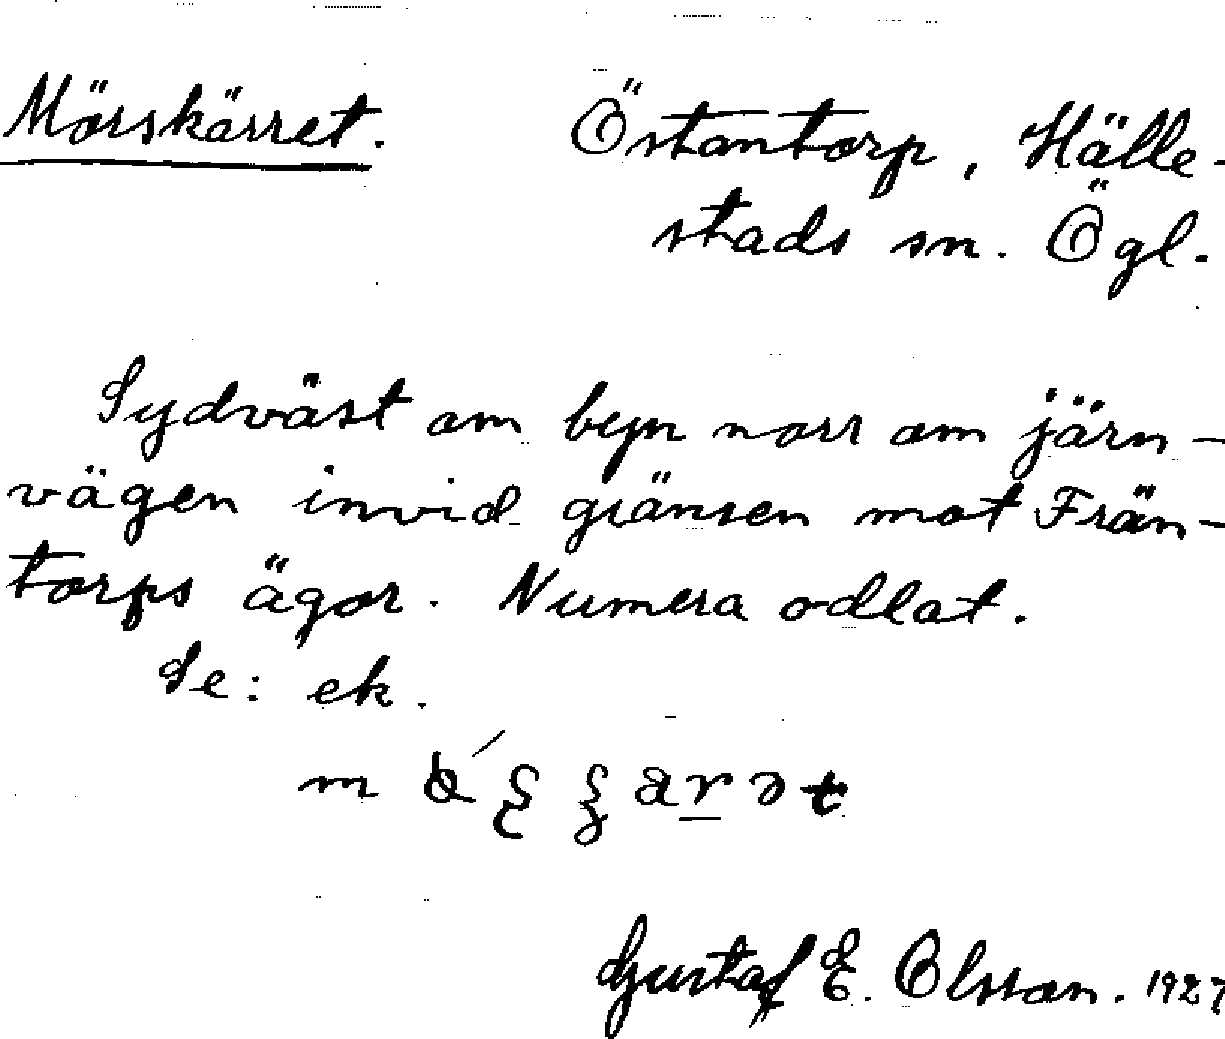 Mörskärret. Östantorp, Hälle-
stads sn. Ögl.
Sydväst om byn norr om järn-
vägen invid gränsen mot Från-
torps ägor. Numera odlat.
Se: ek.
Gustaf E. Olsson. 1927